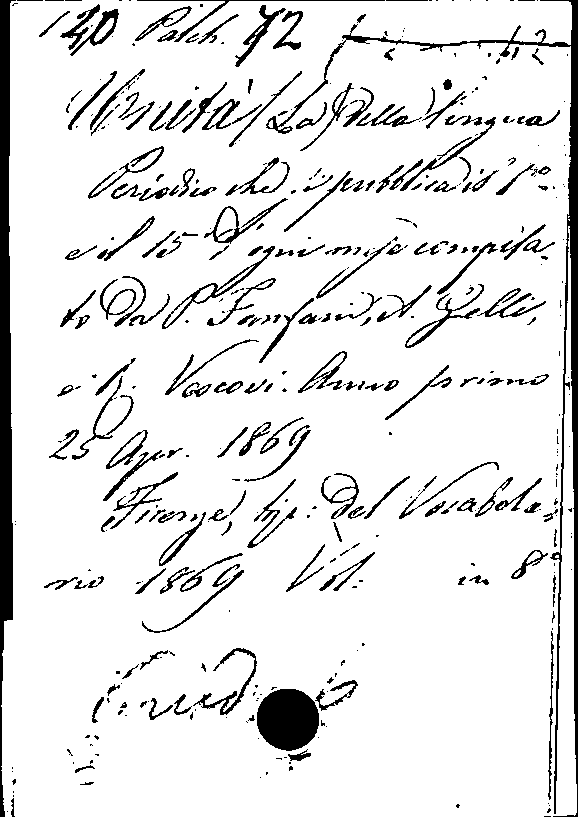 120 Palch. 72
Unità (La) della lingua
Periodico che si pubblica il 1º
e il 15 d'ogni mese compila-
to da P. Fanfani, A. Gelli,
e F. Vescovi. Anno primo
25 Apr. 1869
Firenze, tip: del Vocabola-
rio 1869 Vol. in 8º